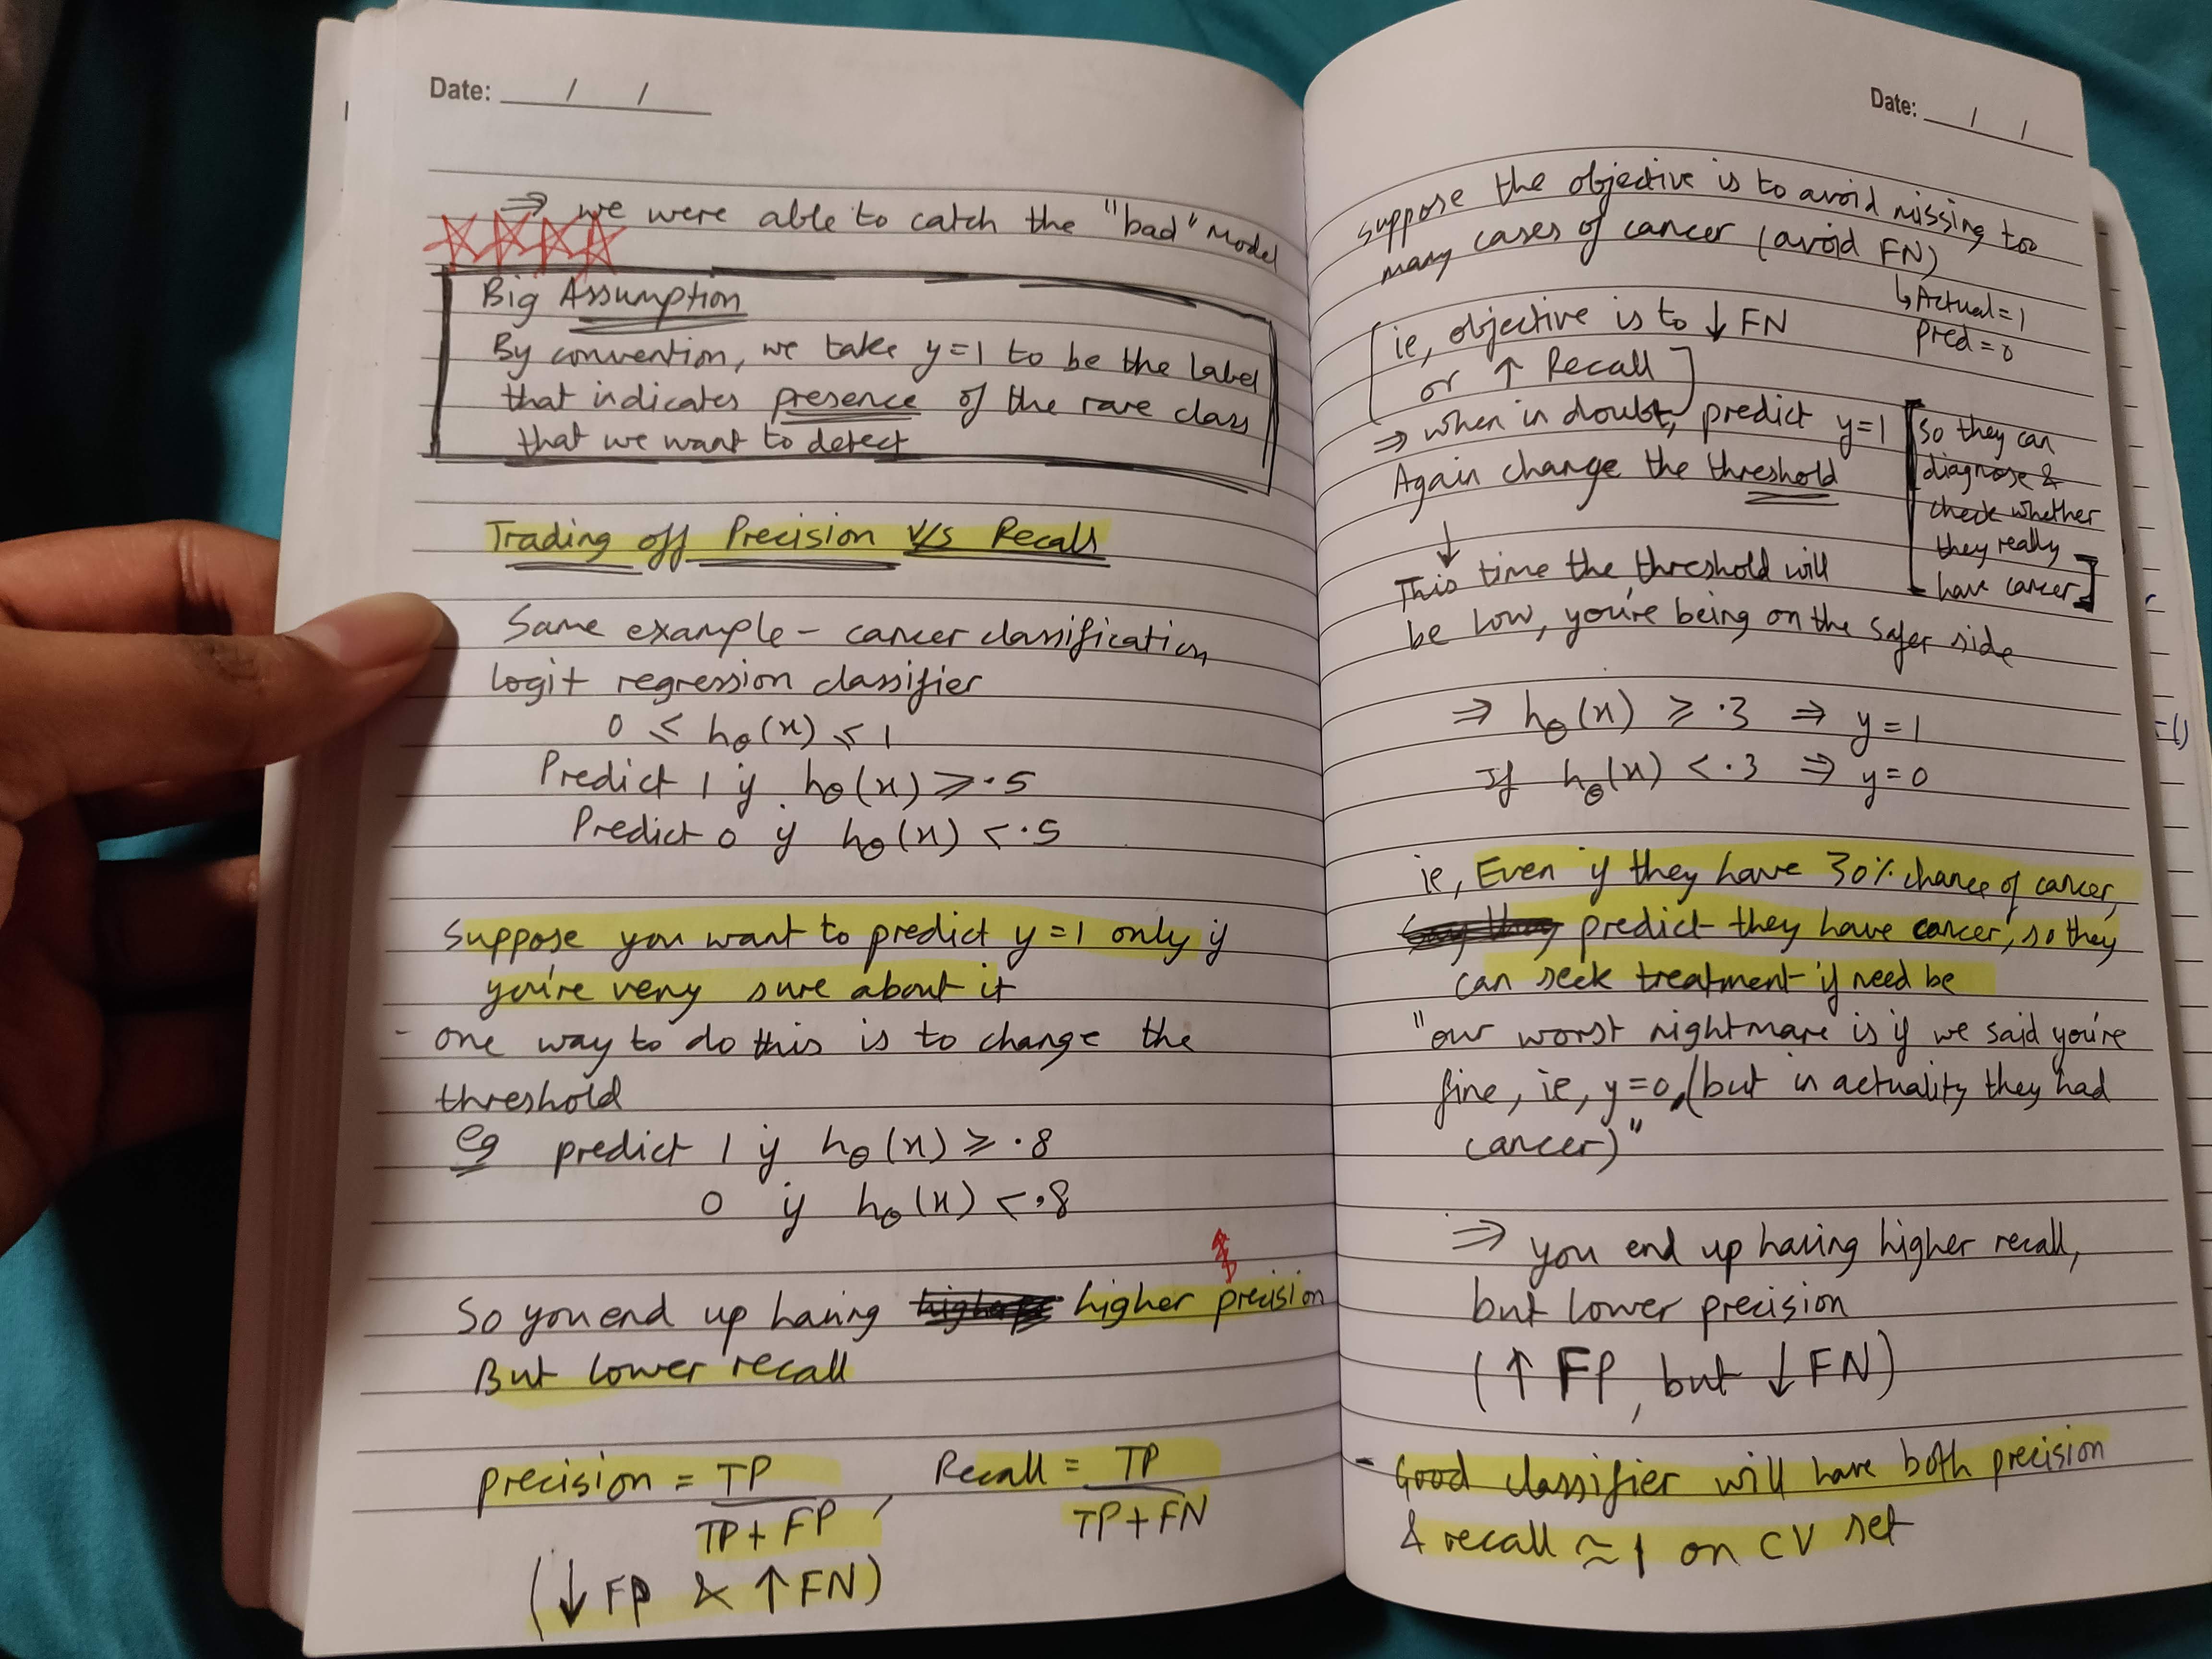 Date: / /
⇒ we were able to catch the "bad" Model
Big Assumption
By convention, we take y=1 to be the label
that indicates presence of the rare class
that we want to detect
Trading off Precision v/s Recall
Same example - cancer classification
logit regression classifier
0 ≤ hθ(x) ≤ 1
Predict 1 if hθ(x) ≥ .5
Predict 0 if hθ(x) < .5
Suppose you want to predict y=1 only if
you're very sure about it
- one way to do this is to change the
threshold
eg predict 1 if hθ(x) ≥ .8
0 if hθ(x) < .8
So you end up having higher precision
But lower recall
Precision = TP / TP + FP , Recall = TP / TP + FN
(↓ FP & ↑ FN)
Date: / /
Suppose the objective is to avoid missing too
many cases of cancer (avoid FN)
↳ Actual = 1
Pred = 0
[ie, objective is to ↓ FN
or ↑ Recall]
⇒ when in doubt, predict y=1
[So they can
diagnose &
check whether
they really
have cancer]
Again change the threshold
↓
This time the threshold will
be low, you're being on the safer side
⇒ hθ(x) ≥ .3 ⇒ y = 1
If hθ(x) < .3 ⇒ y = 0
ie, Even if they have 30% chance of cancer,
predict they have cancer, so they
can seek treatment if need be
"our worst nightmare is if we said you're
fine, ie, y=0, (but in actuality they had
cancer)"
⇒ you end up having higher recall,
but lower precision
(↑ FP, but ↓ FN)
- Good classifier will have both precision
& recall ≃ 1 on CV set